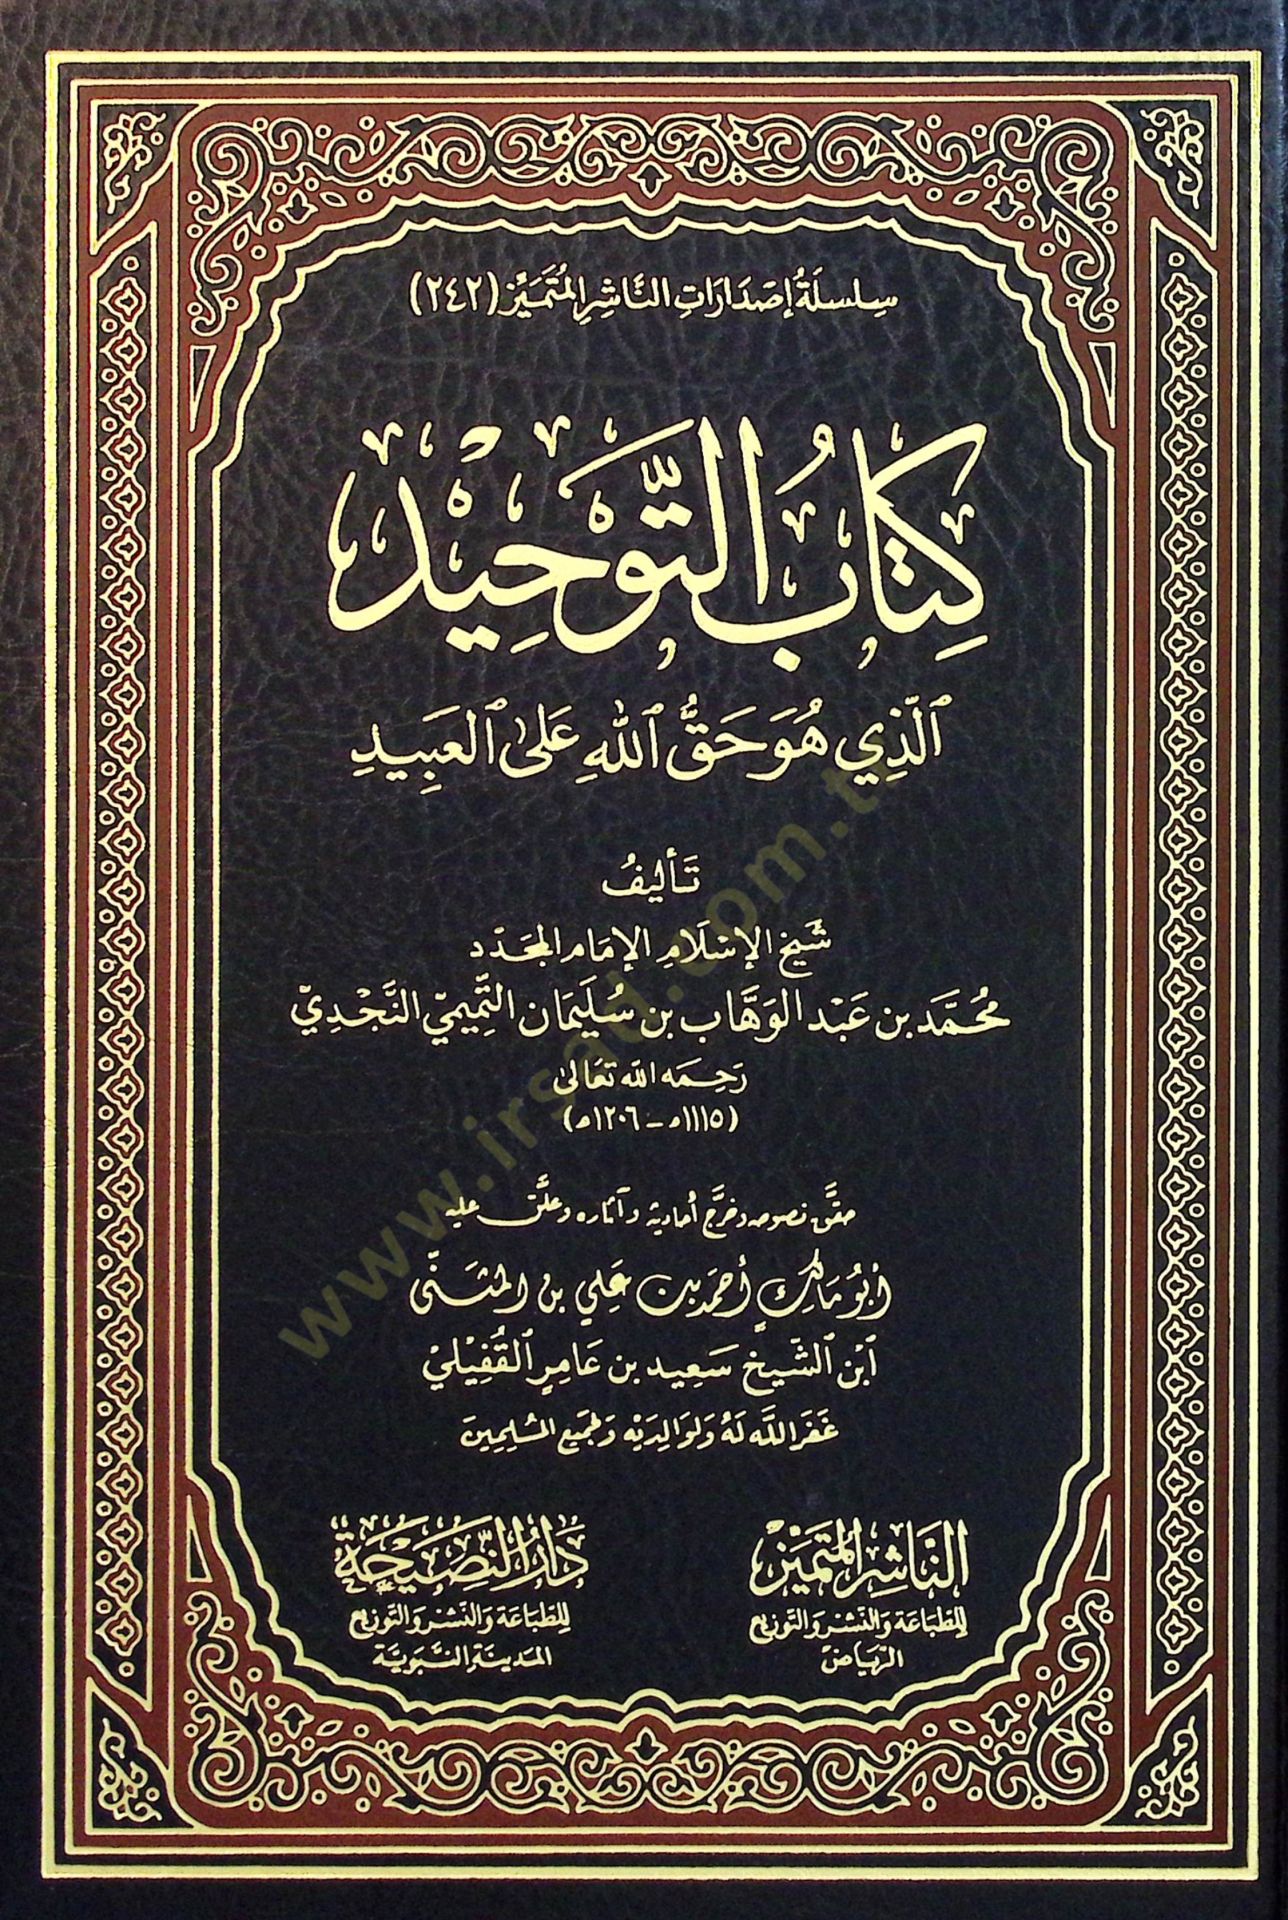 سلسلة إصدارات الناشر المتميز (٢٤٢)
كِتَابُ التَّوْحِيْدِ
الَّذِي هُوَ حَقُّ اللهِ عَلَى العَبِيدِ
تَأليفُ
شَيخ الإسْلَامِ الإمَام المجَدّد
مُحَمَّد بن عَبْد الوَهَّاب بن سُليمَان التَّمِيمِيّ النَّجْدِيّ
رَحِمَه الله تَعَالىٰ
(١١١٥هـ - ١٢٠٦هـ)
حقَّق نصوصه وخرَّج أحاديثه وآثاره وعلَّق عليه
أبُو مَالِكٍ أحمَد بن عَلي بن المثَنَّى
ابن الشَّيخ سَعِيد بن عَامِرٍ القُفَيْلِيّ
غَفَرَ اللَّه لَهُ وَلوَالِدَيْه وَلجَمِيع المُسْلِمِينَ
النَّاشِرُ المُتَمَيِّز
للطبَاعَة وَالنّشْر وَالتّوزيع
الرّيَاض
دَارُ النَّصِيحَة
للطبَاعَة وَالنّشْر وَالتّوزيع
المَدينَة النَّبَويَّة
www.irsad.com.t